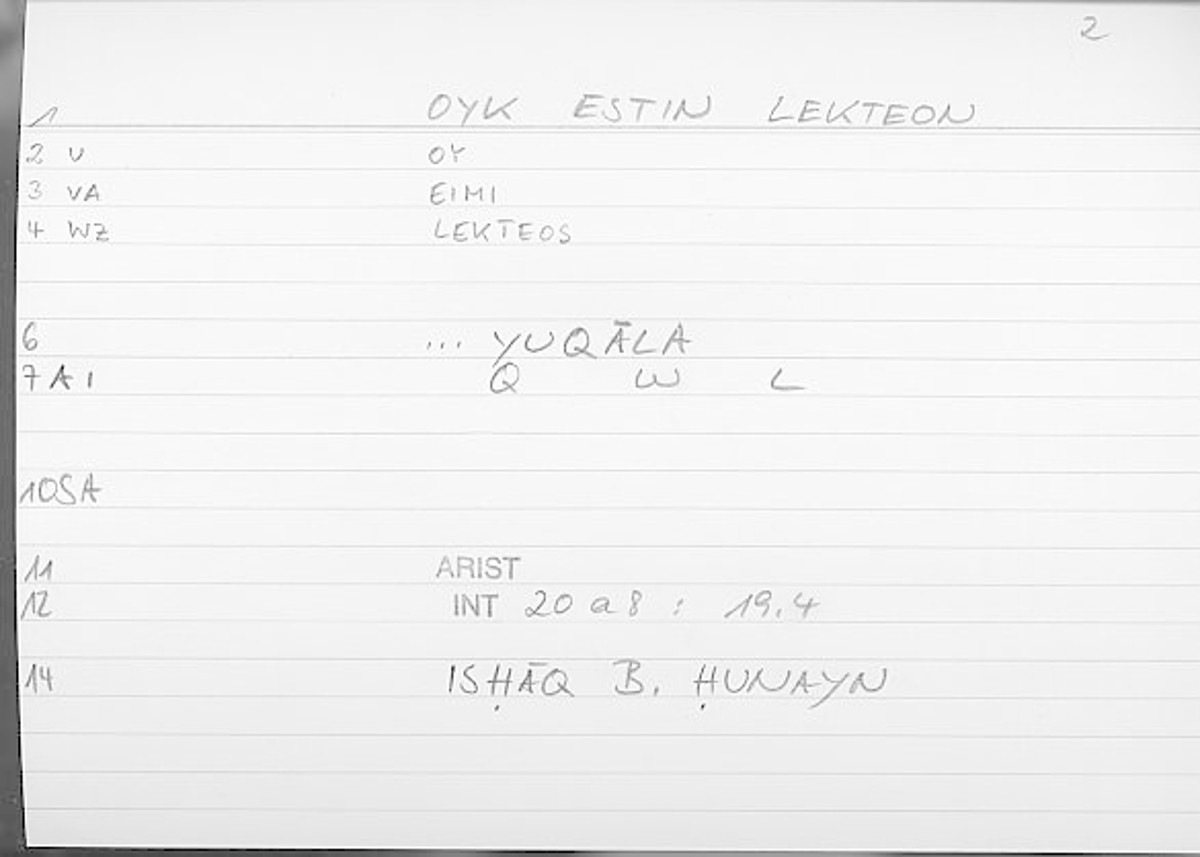 2
1 OYK ESTIN LEKTEON
2 V OY
3 VA EIMI
4 WZ LEKTEOS
6 ... YUQĀLA
7 A I Q W L
10SA
11 ARIST
12 INT 20 a 8 : 19.4
14 ISḤĀQ B. ḤUNAYN